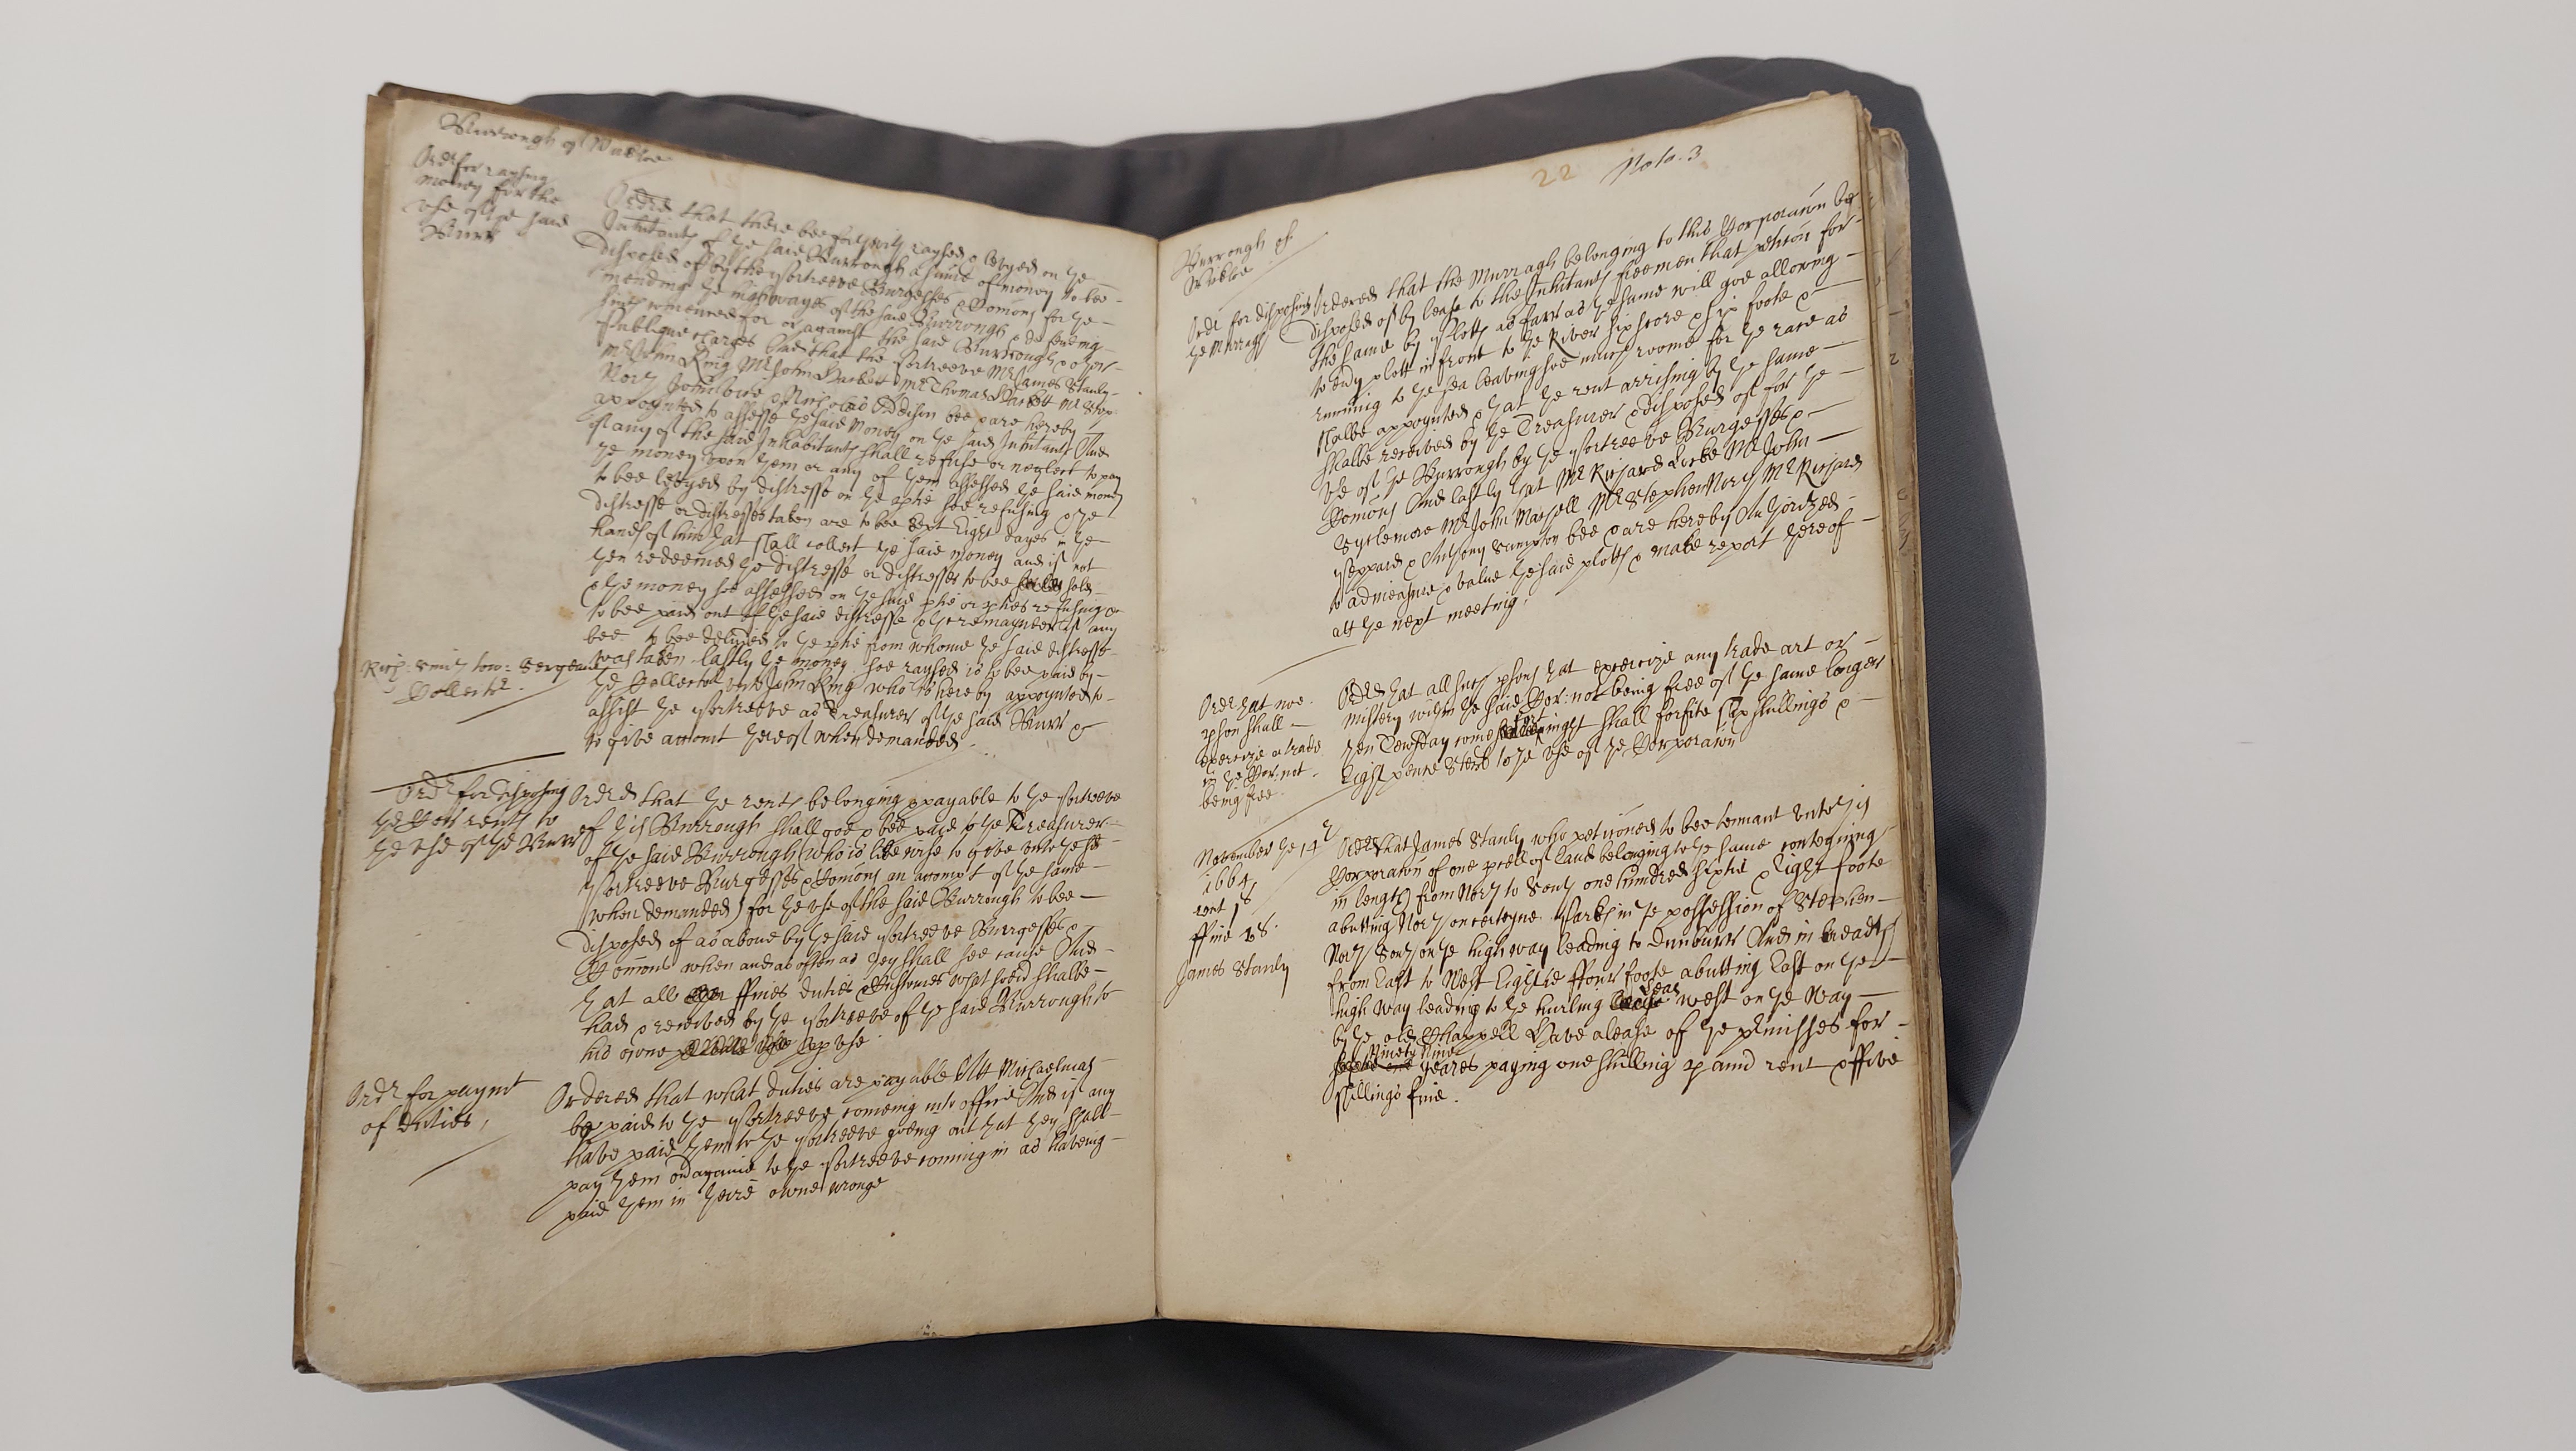 Burrough of Wickloe
Ordr for raysing
money for the
vse of ye said
Burr
Ordrd that there bee forthwith raysed & levyed on ye
Inhitants of ye said Burrough a summe of money to bee
disposed of by the Portreeve Burgesses & Comons for ye
mending ye highwayes of the said Burrough & defending
suits comenced for or against the said Burrough & other
Publique charges And that the Portreeve Mr James Stanly
Mr John King Mr John Hackett Mr Thomas Hackett Mr Step:
North John Lowe & Nicholas Addison bee & are hereby
appoynted to assesse ye said money on ye said Inhitants And
if any of the said Inhabitants shall refuse or neglect to pay
ye money upon them or any of them assessed ye said money
to bee levyed by distresse on ye ptie soe refusing & ye
distresse or distresses taken are to bee kept Eight dayes in ye
hands of him that shall collect ye said money and if not
then redeemed ye distresse or distresses to bee sold
& ye money soe assessed on ye said ptie or pties refusing &
to bee paid out of ye said distresse & ye remaynder if any
bee to bee delivred to ye ptie from whome ye said distresse
was taken lastly ye money soe raysed is to bee paid by
Rich: Smith tow: Sergeant
Collectr.
ye Collector vnto John King who is hereby appoynted to
assist ye Portreeve as Treasurer of ye said Burr &
to give account thereof when demanded
Ordr for disposing
ye Port rents to
ye vse of ye Burr
Ordrd that ye rents belonging & payable to ye Portreeve
of this Burrough shall goe & bee paid to ye Treasurer
of ye said Burrough (who is likewise to give vnto ye sd
Portreeve Burgesses & Comons an accompt of ye same
when demanded) for ye vse of the said Burrough to bee
disposed of as aboue by ye said Portreeve Burgesses &
Comons when and as often as they shall see cause And
that all ffines duties & Customes whatsoevr shalbe
had & received by ye Portreeve of ye said Burrough to
his owne pp vse
Ordr for paymt
of duties,
Ordered that what duties are payable Att Michaelmas
be paid to ye Portreeve comeing into office And if any
have paid them to ye Portreeve goeing out that they shall
pay them agame to ye Portreeve comming in as having
paid them in theire owne wronge
22 Nota. 3
Burrough of
Wickloe
Ordr for disposing
ye Murragh
Ordered that the Murragh belonging to this Corporacon be
disposed of by lease to the Inhitants freemen that peticon for
the same by Plotts as farr as ye same will goe allowing
to evry plott in front to ye River six score & six foote &
running to ye sea leaving soe much roome for ye race as
shalbe appoynted & that ye rent arrising by ye same
shalbe received by ye Treasurer & disposed of for ye
vse of ye Burrough by ye Portreeve Burgesses &
Comons And lastly that Mr Richard Mr John
Mr John Mr Stephen North Mr Richard
& Anthony bee & are hereby Authorized
to admeasure & value ye said plotts & make report thereof
att ye next meeting.
Ordr that noe
pson shall
exercize a trade
in ye Cor: not
being free
Ordrd that all such psons that exercize any trade art or
mistery within ye said Cor: not being free of ye same longer
then Tewsday come fortnight shall forfite six shillings &
Eight pence sterl to ye vse of ye Corporacon
November ye 14th
1664
rent 1s
ffine 5s.
James Stanly
Ordrd that James Stanly who peticoned to bee tennant vnto this
Corporacon of one pcell of land belonging to ye same conteigning
in length from North to South one hundred sixtie & Eight foote
abutting North on certeyne Parks in ye possession of Stephen
North South on ye highway leading to Dunburr And in breadth
from East to West Eightie ffour foote abutting East on ye
high way leading to ye hurling west on ye Way
by ye old Chappell Have a lease of ye pmisses for
Ninety Nine
yeares paying one shilling p annu rent & ffive
shillings fine.